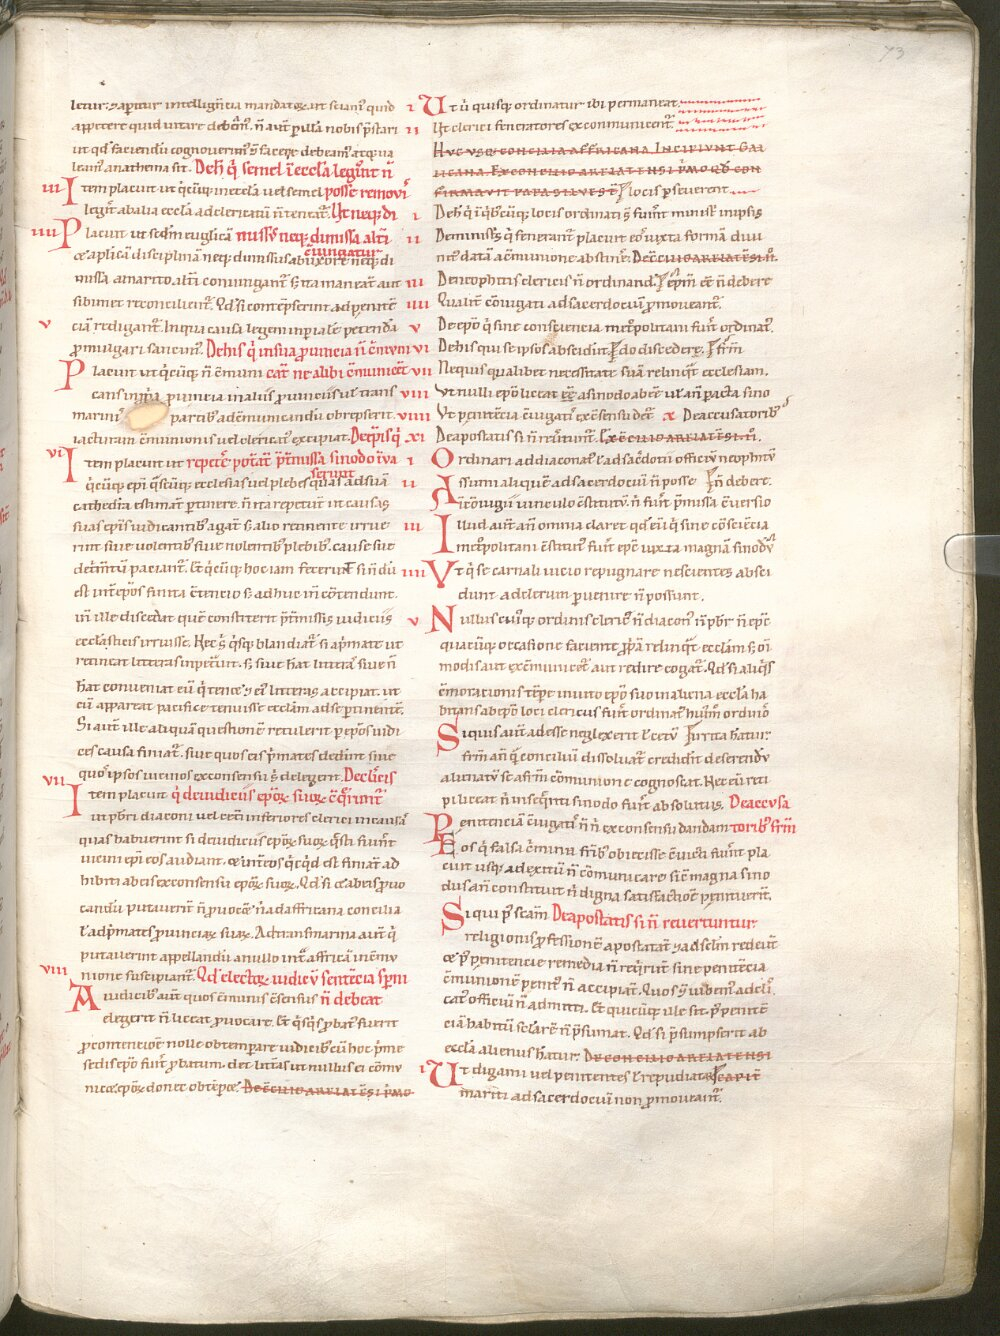 73
letur; & aperitur intelligencia mandatoꝝ ut sciam᷒ quid
appetere quid uitare debeam᷒. n̄ aut̄ ꝑ illā nobis p̄stari
ut qđ faciendū cognouerim᷒
leam᷒ anathema sit. Deħ q̄ semel ī eccl̄a legūnt n̄
iii Item placuit ut q̄cūq; in eccl̄a uel semel posse remouı̄
legīt ab alia eccl̄a ad clericatū n̄ teneat᷑. Ut neq; di
iiii Placuit ut sc̄dm euglicā missus neq; dimissa altı̄
ce aplicā disciplinā neq; dimissus ab uxore neq; di
ɔiungatur
missa a marito. alt̄i coniungant᷑ s; ita maneat aut
sibimet reconcilient᷑. Qđ si contēpserint ad penitē
v ciā redigant᷑. In qua causa legem inperialē petendā
ꝓmulgari sancim᷒. De his q̄ in sua ꝓuincia n̄ cm̄uni
Placuit ut q̄cūq; n̄ cm̄uni cat̄ ne alibi cm̄unicēt
cans ꝓuincia in aliis ꝓuinciis ul̄ trans
marinis partib᷒ ad cm̄unicandū obrepserit
iacturam cm̄unionis uel clericat᷒ excipiat. De ep̄is q̄
vi Item placuit ut repet̄e pot̄at᷑ p̄t̄missa sinodo ı̄ua
serunt
q̄cūq; ep̄i q̄scūq; ecclesias uel plebes quas ad suā
cathedrā estimant ꝑtinere. n̄ ita repetunt ut causas
suas ep̄is iudicantib᷒ agāt s; alio retinente irrue
rint siue uolentib᷒ siue nolentib᷒ plebib᷒. cause sue
det̄imtū paciant᷑. Et q̄cūq; hoc iam fecerunt si n̄dū
est int̄ ep̄os finita ɔtencio s; adhuc in̄ cōtendunt.
in̄ ille discedat quē constiterit p̄t̄missis iudiciis
ecclasticis irruisse. Nec s; q̄sq; blandiat᷑ si a p̄mate ut
retineat litteras inpet̄uit. s; siue ħat litteras siue n̄
ħat conueniat eū q̄ tenet & ei᷒ litteras accipiat. ut
eū appareat pacifice tenuisse eccl̄am ad se ꝑtinentē.
Si aut̄ ille aliquā questionē retulerit ꝑ ep̄os iudi
ces causa finiat᷑. siue quos eis p̄mates dedint siue
quos ipsos uicinos ex consensu s; delegerit. De cl̄icis
vii Item placuit q̄ de iudiciis ep̄oꝝ suoꝝ cōq̄runt᷑
ut pbr̄i diaconi uel cet̄i inferiores clerici in causis
quas habuerint si de iudiciis ep̄oꝝ suoꝝ q̄sti fūint
uicini ep̄i eos audiant. & int̄ eos q̄cq̄d est finiat᷑ ad
hibiti ab eis ex consensu ep̄oꝝ suoꝝ. Qđ si & ab eis ꝓuo
candū putauerint n̄ ꝓuocēt n̄ ad affricana concilia
ul̄ ad p̄mates ꝓuinciaꝝ suaꝝ. Ad transmarina aut̄ q̄
putauerint appellandū a nullo int̄ affricā in cm̄u
viii nione suscipiant᷑. Qđ electoꝝ iudicū sentēcia sꝑni
A iudicib᷒ aut̄ quos cm̄unis ɔsensus n̄ debeat
elegerit n̄ liceat ꝓuocare. Et q̄sq̄s ꝓbat᷒ fuerit
ꝓ contencione nolle obtemꝑare iudicib᷒ cū hoc p̄me
sedis ep̄o fuīt ꝓbatum. det litt̄as ut nullus ei cōmu
nicet ep̄oꝝ donec obtēꝑet. De ɔcilio arelatēsi p̄mo
i Ut ū quisq; ordinatur ibi permaneat.
ii Ut clerici feneratores excommunicent᷑.
Huc usq; concilia affricana. Incipiunt gal
licana. Ex concilio arelatensi p̄mo qđ con
firmauit papa siluestē locis ꝑseuerent.
i De ħ q̄ ı̄ q̄b᷒cūq; locis ordinati s; fuīnt ministī in ipsis
ii De ministīs q̄ fenerant placuit eos iuxta formā diui
nit᷒ datā a cm̄unione abstinēi. De ɔcilio arelatēsi ii.
iii De neophitis clericis n̄ ordinand. ep̄m ēē n̄ debere
iiii Qualit̄ ɔiugati ad sacerdociū ꝓmoueant᷑.
v De ep̄o q̄ sine consciencia met̄politani fuīt ordinat᷒.
vi De his qui se ipsos abscidint do discedere. frm̄
vii Ne quis qualibet necessitate suā relinq̄t ecclesiam.
viii Ut nulli ep̄o liceat ēē a sinodo abēe ul̄ an̄ pacta sino
viiii Ut penitēcia ɔiugat᷒ ex ɔsensu det᷑. x De accusatorib᷒
xi De apostatis si n̄ reūtunt᷑. Ex ɔcilio arelatēsi ii.
i Ordinari ad diaconat᷒ ul̄ ad sac̄dotii officiū neophitū
ii Assumi aliquē ad sacerdociū n̄ posse n̄ debere.
ı̄ ɔiugii uinculo ɔstitutū. n̄ fuīt p̄missa ɔuersio
iii Illud aut̄ an̄ omnia claret qđ eū q̄ sine ɔsciēcia
met̄politani ɔstitut᷒ fuīt ep̄c iuxta magnā sinodū
iiii Ut q̄ se carnali uicio repugnare nescientes absci
dunt ad clerum ꝑuenire n̄ possunt.
v Nullus cui᷒q; ordinis cleric᷒ n̄ diacon᷒ n̄ pbr̄ n̄ ep̄c
quacūq; occasione faciente ꝓp̄ā relinq̄t eccl̄am s; oı̄
modis aut excm̄unicet᷑ aut redire cogat᷑. Qđ si aliq̄s
cm̄oracionis tēpe inuito ep̄o suo in aliena eccl̄a ha
bitans ab ep̄o loci clericus fuīt ordinat᷒ hui᷒m ordinō
Siquis aut̄ adesse neglexerit ul̄ cetū irrita ħatur.
frm̄ an̄ q̄ conciliū dissoluat᷑ credidit deserendū
alienatū se a frm̄ cōmunione cognoscat. Nec eū reci
pi liceat n̄ in seq̄nti sinodo fuīt absolutus. De accusa
Penitenciā ɔiugatis n̄ n̄ ex consensu dandam torib᷒ frm̄
Eos q̄ falsa c̄minū frīb᷒ obiecisse ɔuicti fuīnt pla
cuit usq; ad exitū n̄ cōmunicare sic̄ magna sino
dus an̄ constituit n̄ digna satisfactiōe penituerīt.
Siqui p᷒ scām De apostatis si n̄ revertuntur
religionis ꝓfessionē apostatāt & ad sclm̄ redeūt
& p᷒ penitencie remedia n̄ req̄runt sine penitēcia
cm̄unionē penit᷒ n̄ accipiant. Quos & iubem᷒ ad cl̄i
cat᷒ officiū n̄ admitti. Et quicūq; ille sit p᷒ penitē
ciā habitū sclarē n̄ p̄sumat. Qđ si p̄sumpserit ab
eccl̄a alienus ħatur. De concilio arelatensi
i Ut digami uel penitentes ul̄ repudiataꝝ capit
mariti ad sacerdociū non ꝓmoueant᷑.